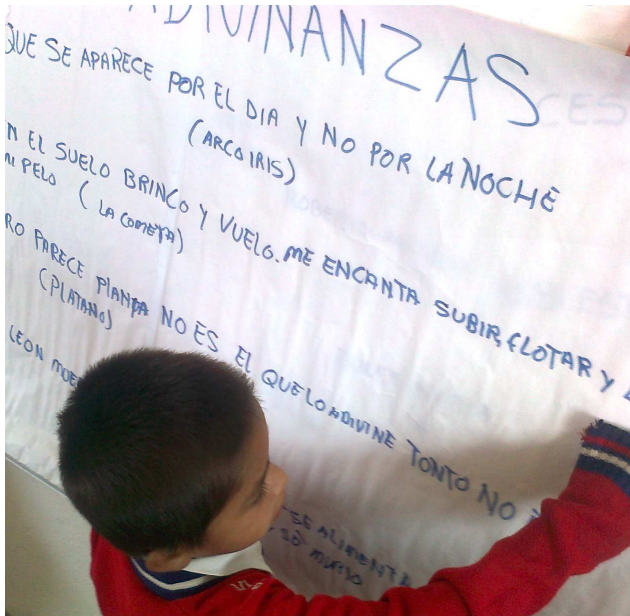 ADIVINANZAS
QUE SE APARECE POR EL DIA Y NO POR LA NOCHE
(ARCO IRIS)
N EL SUELO BRINCO Y VUELO. ME ENCANTA SUBIR, FLOTAR Y
MI PELO (LA COMETA)
RO PARECE PLANTA NO ES EL QUE LO ADIVINE TONTO NO
(PLATANO)
LEON MUE
SE ALIMENTA